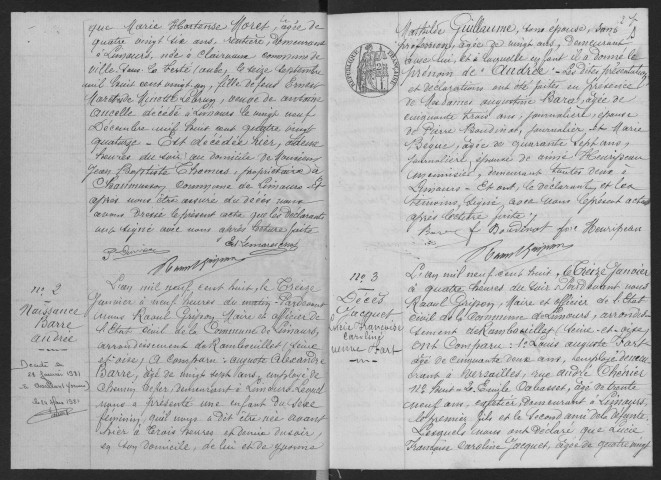 que Marie Hortense Moret, âgée de
quatre vingt six ans, rentière, demeurant
à Limours, née à Clairvaux commune de
ville sous la ferté (aube), le seize septembre
mil huit cent vingt un, fille de feus Ernest
Moret et de Lebrun, veuve de antoine
ancelle décédé à Limours le vingt neuf
Décembre mil huit cent quatre vingt
quatorze – Est décédée hier, à deux
heures du soir au domicile de Monsieur
Jean Baptiste Thomas, propriétaire à
Chaumusson commune de Limours – Et
après nous être assuré du décès nous
avons dressé le présent acte que les déclarants
ont signé avec nous après lecture faite
Raoul Gripon
nº 2
Naissance
Barre
andrée
L'an mil neuf cent huit, le treize
Janvier à neuf heures du matin, Pardevant
nous Raoul Gripon Maire et officier de
l'Etat Civil de la Commune de Limours,
arrondissement de Rambouillet (Seine
et-oise) a Comparu : auguste Alexandre
Barre, âgé de vingt sept ans, employé de
Chemin de fer, demeurant à Limours. Lequel
nous a présenté une enfant du sexe
féminin, qu'il nous a dit être née avant
hier à trois heures et demie du soir,
en son domicile, de lui et de yvonne
Mathilde Guillaume, son épouse, sans
profession, âgée de vingt ans, demeurant
avec lui, et à laquelle enfant il a donné le
prénom de : Andrée – Lesdites présentation
et déclarations ont été faites en présence
de Mesdames augustine Bara, âgée de
cinquante trois ans, journalière, épouse
de Pierre Boudinot, journalier, et Marie
Bigue, âgée de quarante sept ans,
journalière, épouse de aimé Heuripeau
demeurant toutes deux à
Limours – Et ont, le déclarant et les
témoins, signé avec nous le présent acte
après lecture faite
Barre f Boudinot fe Heuripeau
Raoul Gripon
nº 3
Décès
Jacquet
Lucie Françoise
Caroline
veuve Bart
L'an mil neuf cent huit, le treize Janvier
à quatre heures du soir Pardevant nous
Raoul Gripon, Maire et officier de l'Etat
civil de la commune de Limours, arrondis-
sement de Rambouillet (Seine-et-oise),
ont Comparu : Mr Louis auguste Bart
âgé de cinquante deux ans, employé, demeu-
rant à Versailles, rue andré Chénier
nº huit – Et Emile Cabasset, âgé de trente
neuf ans, cafetier, demeurant à Limours,
le premier fils et le second ami de la défunte.
Lesquels nous ont déclaré que Lucie
Françoise Caroline Jacquet, âgée de quatre vingt